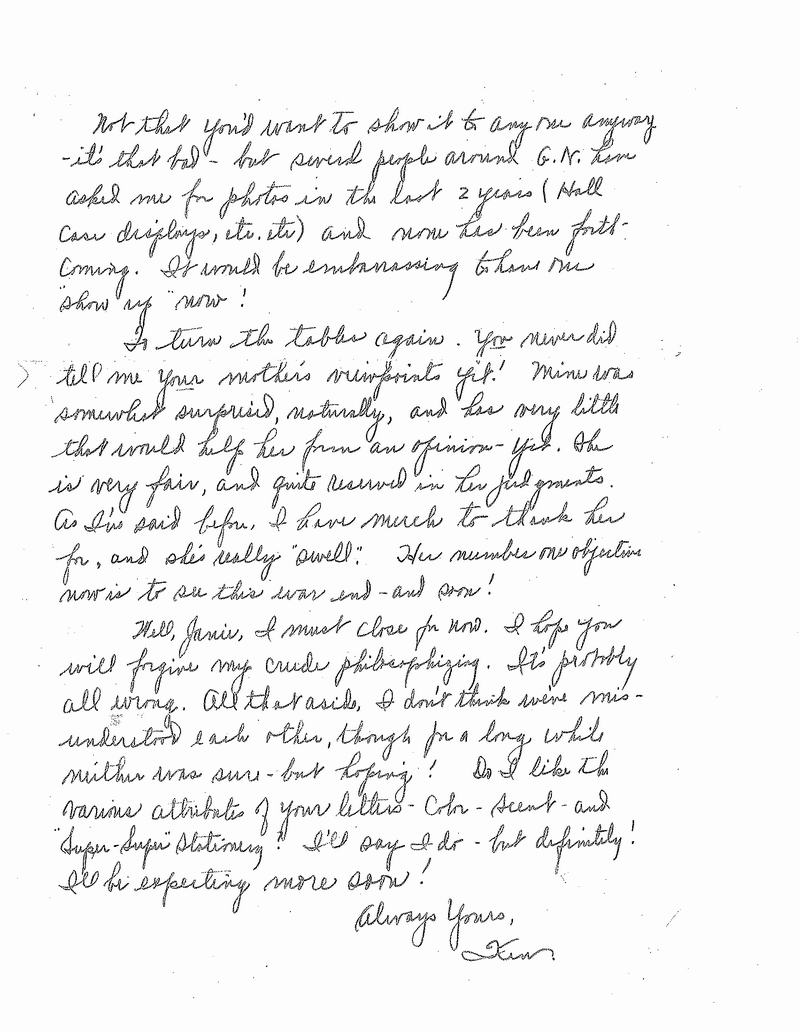 Not that you'd want to show it to any one anyway
- it's that bad - but several people around G.N. have
asked me for photos in the last 2 years (Hall
Case displays, etc. etc) and none has been forth-
coming. It would be embarrassing to have one
"show up" now!
To turn the tables again. You never did
tell me your mother's viewpoints yet! Mine was
somewhat surprised, naturally, and has very little
that would help her form an opinion - yet. She
is very fair, and quite reserved in her judgments.
As I've said before, I have much to thank her
for, and she's really "swell". Her number one objective
now is to see this war end - and soon!
Well, Janie, I must close for now. I hope you
will forgive my crude philosophizing. It's probably
all wrong. All that aside, I don't think we've mis-
understood each other, though for a long while
neither was sure - but hoping! Do I like the
various attributes of your letters - Color - Scent - and
"Super-Super" Stationery? I'll say I do - but definitely!
I'll be expecting more soon!
Always Yours,
Ken.